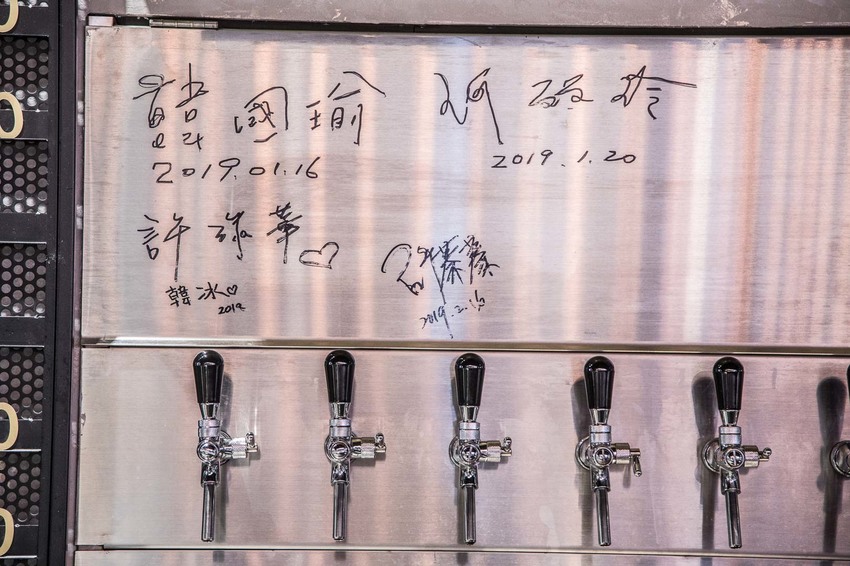 韓國瑜
2019.01.16
2019.1.20
許淑華♡
韓冰♡
2019
2019.2.16